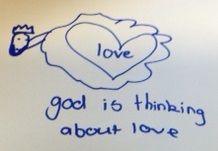 love
god is thinking
about love